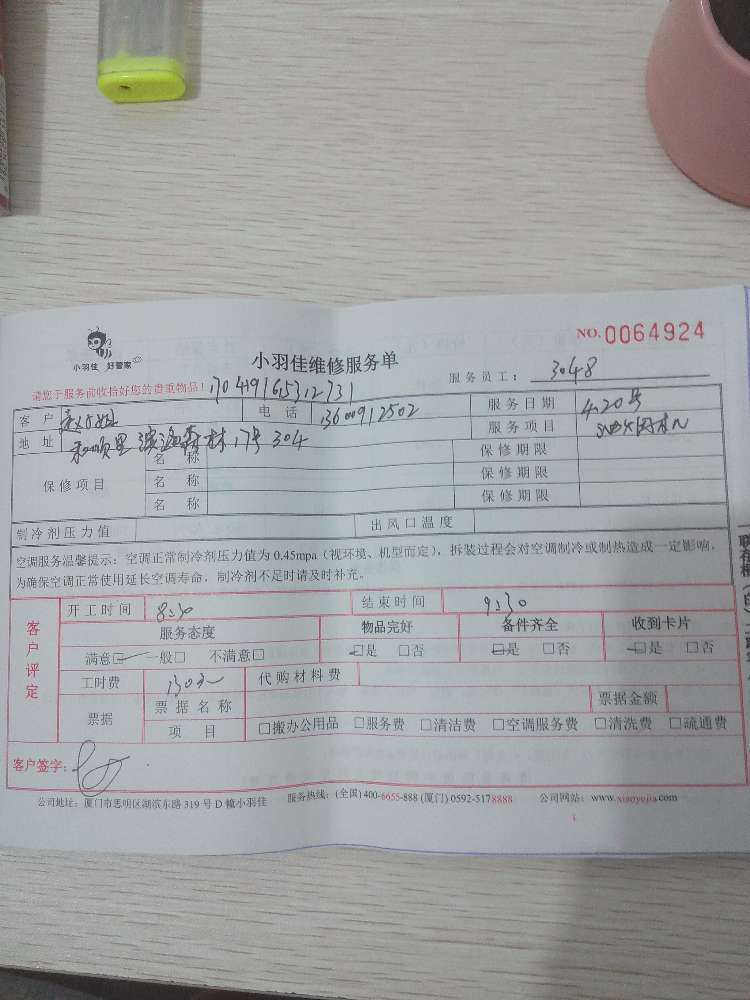 小羽佳 好管家
小羽佳维修服务单
NO.0064924
请您于服务前收拾好您的贵重物品!
服务员工: 3048
客户 电话 13600912502 服务日期 4.20号
地址 和顺里 17号 304 服务项目
保修项目 名称 保修期限
名称 保修期限
名称 保修期限
制冷剂压力值 出风口温度
空调服务温馨提示:空调正常制冷剂压力值为 0.45mpa(视环境、机型而定),拆装过程会对空调制冷或制热造成一定影响,
为确保空调正常使用延长空调寿命,制冷剂不足时请及时补充。
客户评定
开工时间 8:30 结束时间 9:30
服务态度 物品完好 备件齐全 收到卡片
满意☑ 一般□ 不满意□ ☑是 □否 ☑是 □否 ☑是 □否
工时费 130元 代购材料费
票据 票据名称 票据金额
项目 □搬办公用品 □服务费 □清洁费 □空调服务费 □清洗费 □疏通费
客户签字:
公司地址:厦门市思明区湖滨东路 319 号 D 幢小羽佳 服务热线:(全国) 400-6655-888 (厦门) 0592-5178888 公司网站:www.xiaoyujia.com